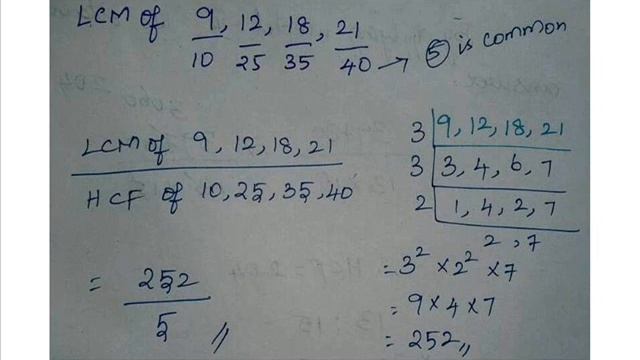 LCM of 9/10, 12/25, 18/35, 21/40 → 5 is common
LCM of 9, 12, 18, 21
HCF of 10, 25, 35, 40
= 252
5 //
3 | 9, 12, 18, 21
3 | 3, 4, 6, 7
2 | 1, 4, 2, 7
2, 7
= 3² × 2² × 7
= 9 × 4 × 7
= 252 //